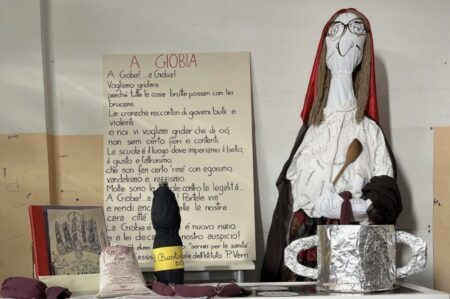 A GIOBIA
A Giobia!... a Giobia!
Vogliamo gridare
perché tutte le cose brutte possan con lei
bruciare.
Le cronache raccontan di giovani bulli e
violenti
e noi vi vogliam gridar che di ciò,
non siam certo fieri e contenti.
La scuola è il luogo dove impariamo il bello,
il giusto e l'altruismo,
che non fan certo rima con egoismo,
vandalismo e razzismo.
Molte sono le contro la legalità...
A Giobia! Portale via
e rendi le nostre
care città.
La Giobia è nuovo inizio
e a lei nostro auspicio!
"servizi per la sanità"
dell'Istituto P. Verri